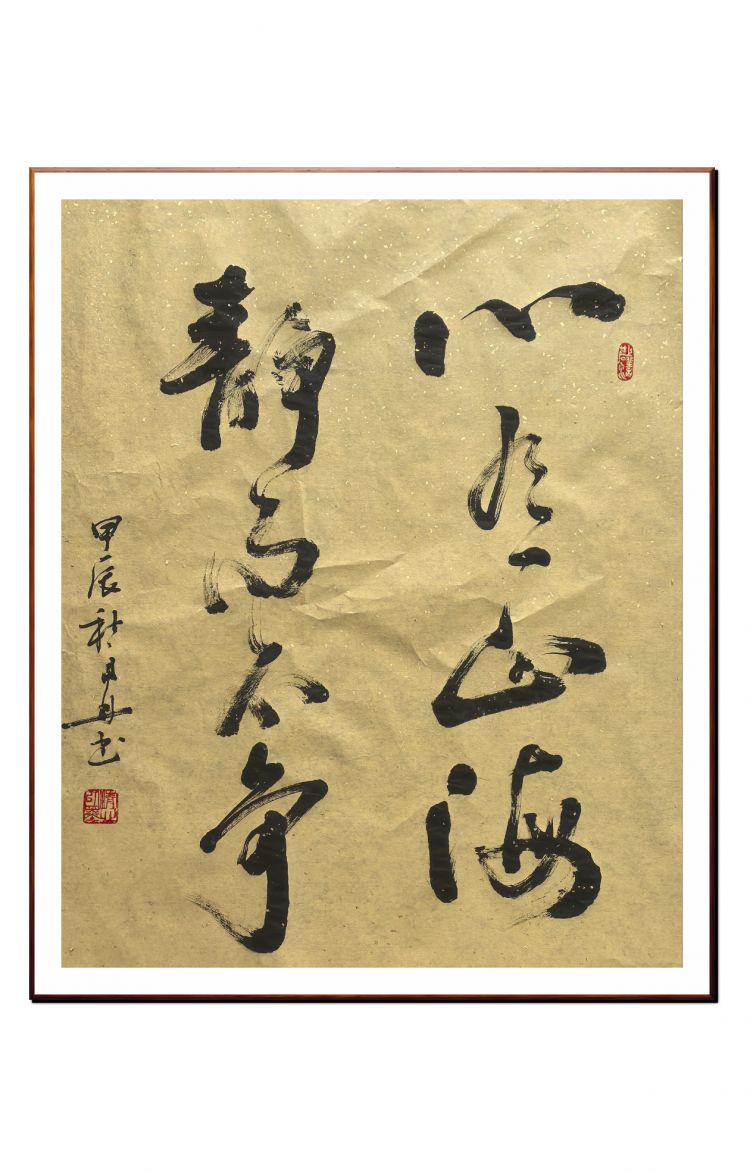 心山海
静而不争
甲辰秋月书